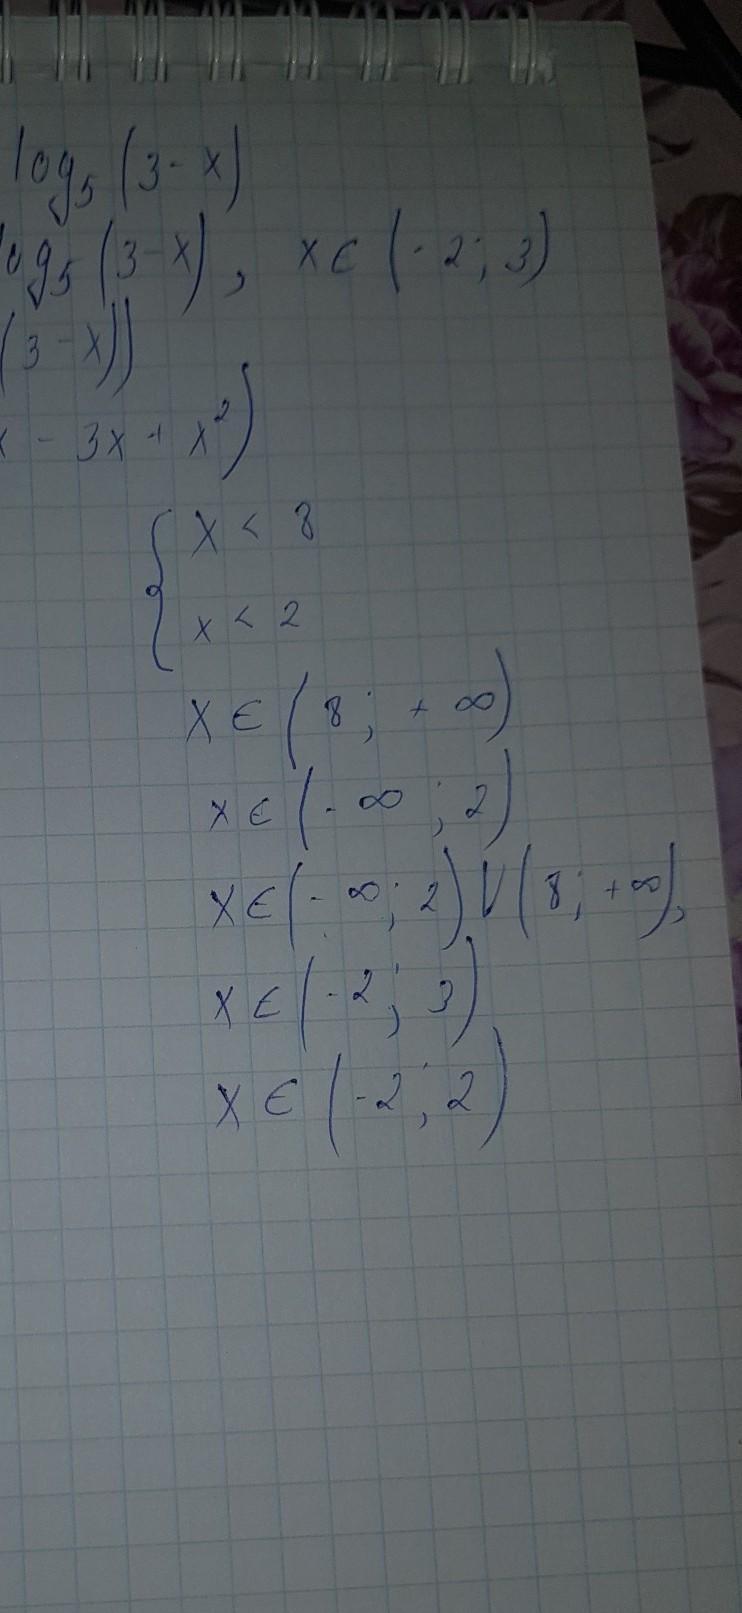 log₅(3-x)
log₅(3-x), x∈(-2; 3)
(3-x))
x - 3x + x²)
{ x < 8
x < 2
x∈(8; +∞)
x∈(-∞; 2)
x∈(-∞; 2)∪(8; +∞),
x∈(-2; 3)
x∈(-2; 2)